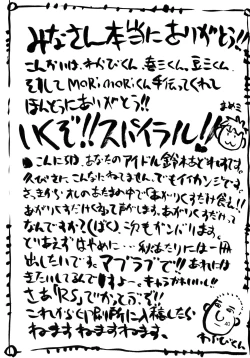 みなさん本当にありがとう!!
こんかいは、わかびくん、春三くん、豆三くん、
そしてMORiMORiくん手伝ってくれて
ほんとにありがとう!!
まめこ
いくぞ!!スパイラル!!
こんにちは、あなたのアイドル鈴木
久びさに、こんなにねてません。でもイイカンジです。
さっきから、オレのあたまの中で「あがりくすだけ食え!!
あがりくすだけくえ」って声がします。あがりくすだけって
なんですか?(ばく)、次もガンバります。
とりあえずはやめに…秋あたりには一冊
出したいです。マブラブで!!あれには
きたいしてるんで
さあ「RS」でかっとうぞ!!
これからく別所に入稿したら
ねますねますねます。
わかびくん